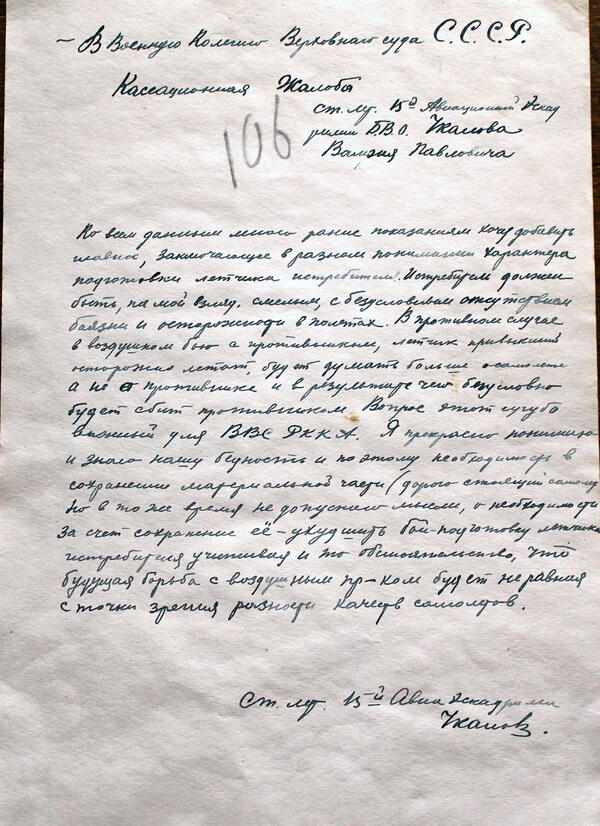 – В Военную Колегию Верховного суда С.С.С.Р.
Кассационная Жалоба
ст. лет. 15й Авиационной Эскад
рилии Б.В.О. Чкалова
Валерия Павловича
106
Ко всем данным много ранее показаниям хочу добавить
главное, заключающее в разном понимании характера
подготовки летчика истребителя. Истребитель должен
быть, на мой взгляд, смелым, с безусловным отсутствием
баязни и осторожности в полетах. В противном случае
в воздушном бою с противником, летчик привыкший
осторожно летат, будет думать больше о самолете
а не о противнике и в результате чего безусловно
будет сбит противником. Вопрос этот сугубо
важный для ВВС РККА. Я прекрасно понимаю
и знаю нашу бедность и поэтому необходимость в
сохранении материальной части (дорого стоящий самолет
Но в то же время не допускаю мысли, о необходимости
за счет сохранение её – ухудшить бои-подготовку летчика
истребителя учитывая и то обстоятельство, что
будущая борьба с воздушным пр-ком будет неравная
с точки зрения разности качеств самолетов.
Ст. лет. 15й Авиа Эскадрилии
Чкалов.